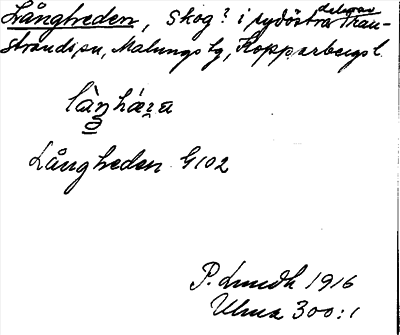 Långheden, skog? i sydöstra delarav Tran-
strands sn, Malungs tg, Kopparbergs l.
Långheden G102
P. Lundh 1916
Ulma 300:1